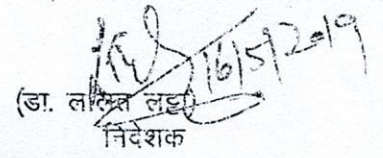 16/5/2019
(डा. ललित लट्टा)
निदेशक